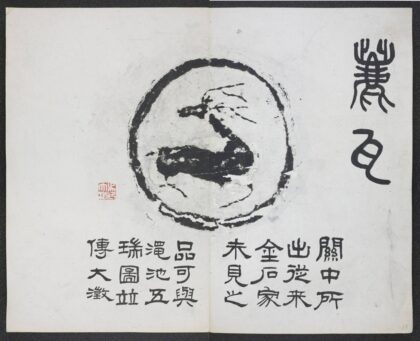 瓦
關中所
出從來
金石家
未見之
品可與
澠池五
瑞圖並
傳大澂